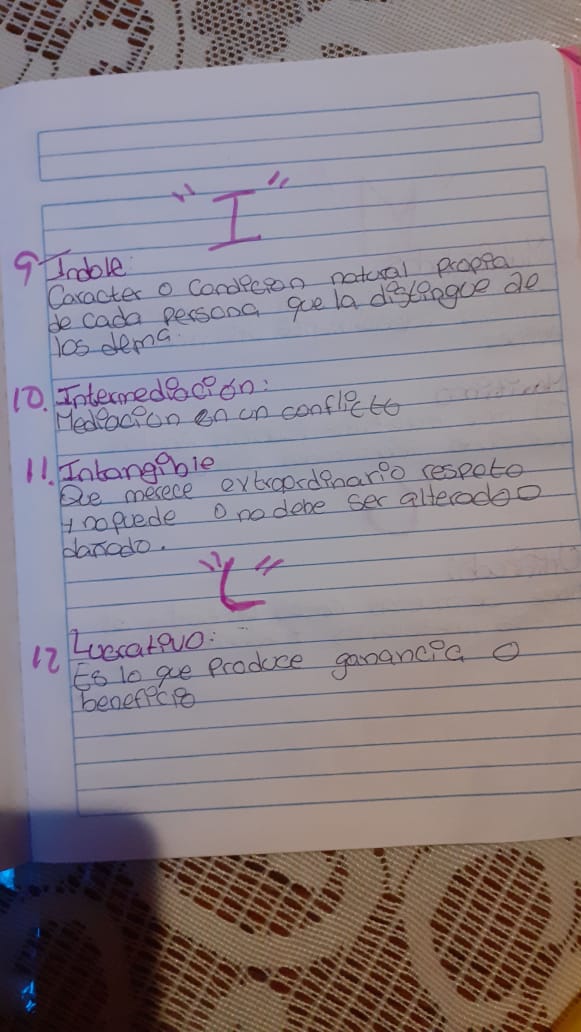 "I"
9 Indole:
Caracter o Condicion natural propia
de cada persona que la distingue de
los dema.
10. Intermediación:
Mediacion en un conflicto
11. Intangible
Que merece extraordinario respeto
y no puede o no debe ser alterado o
dañado.
"L"
12 Lucrativo:
Es lo que produce ganancia o
beneficio